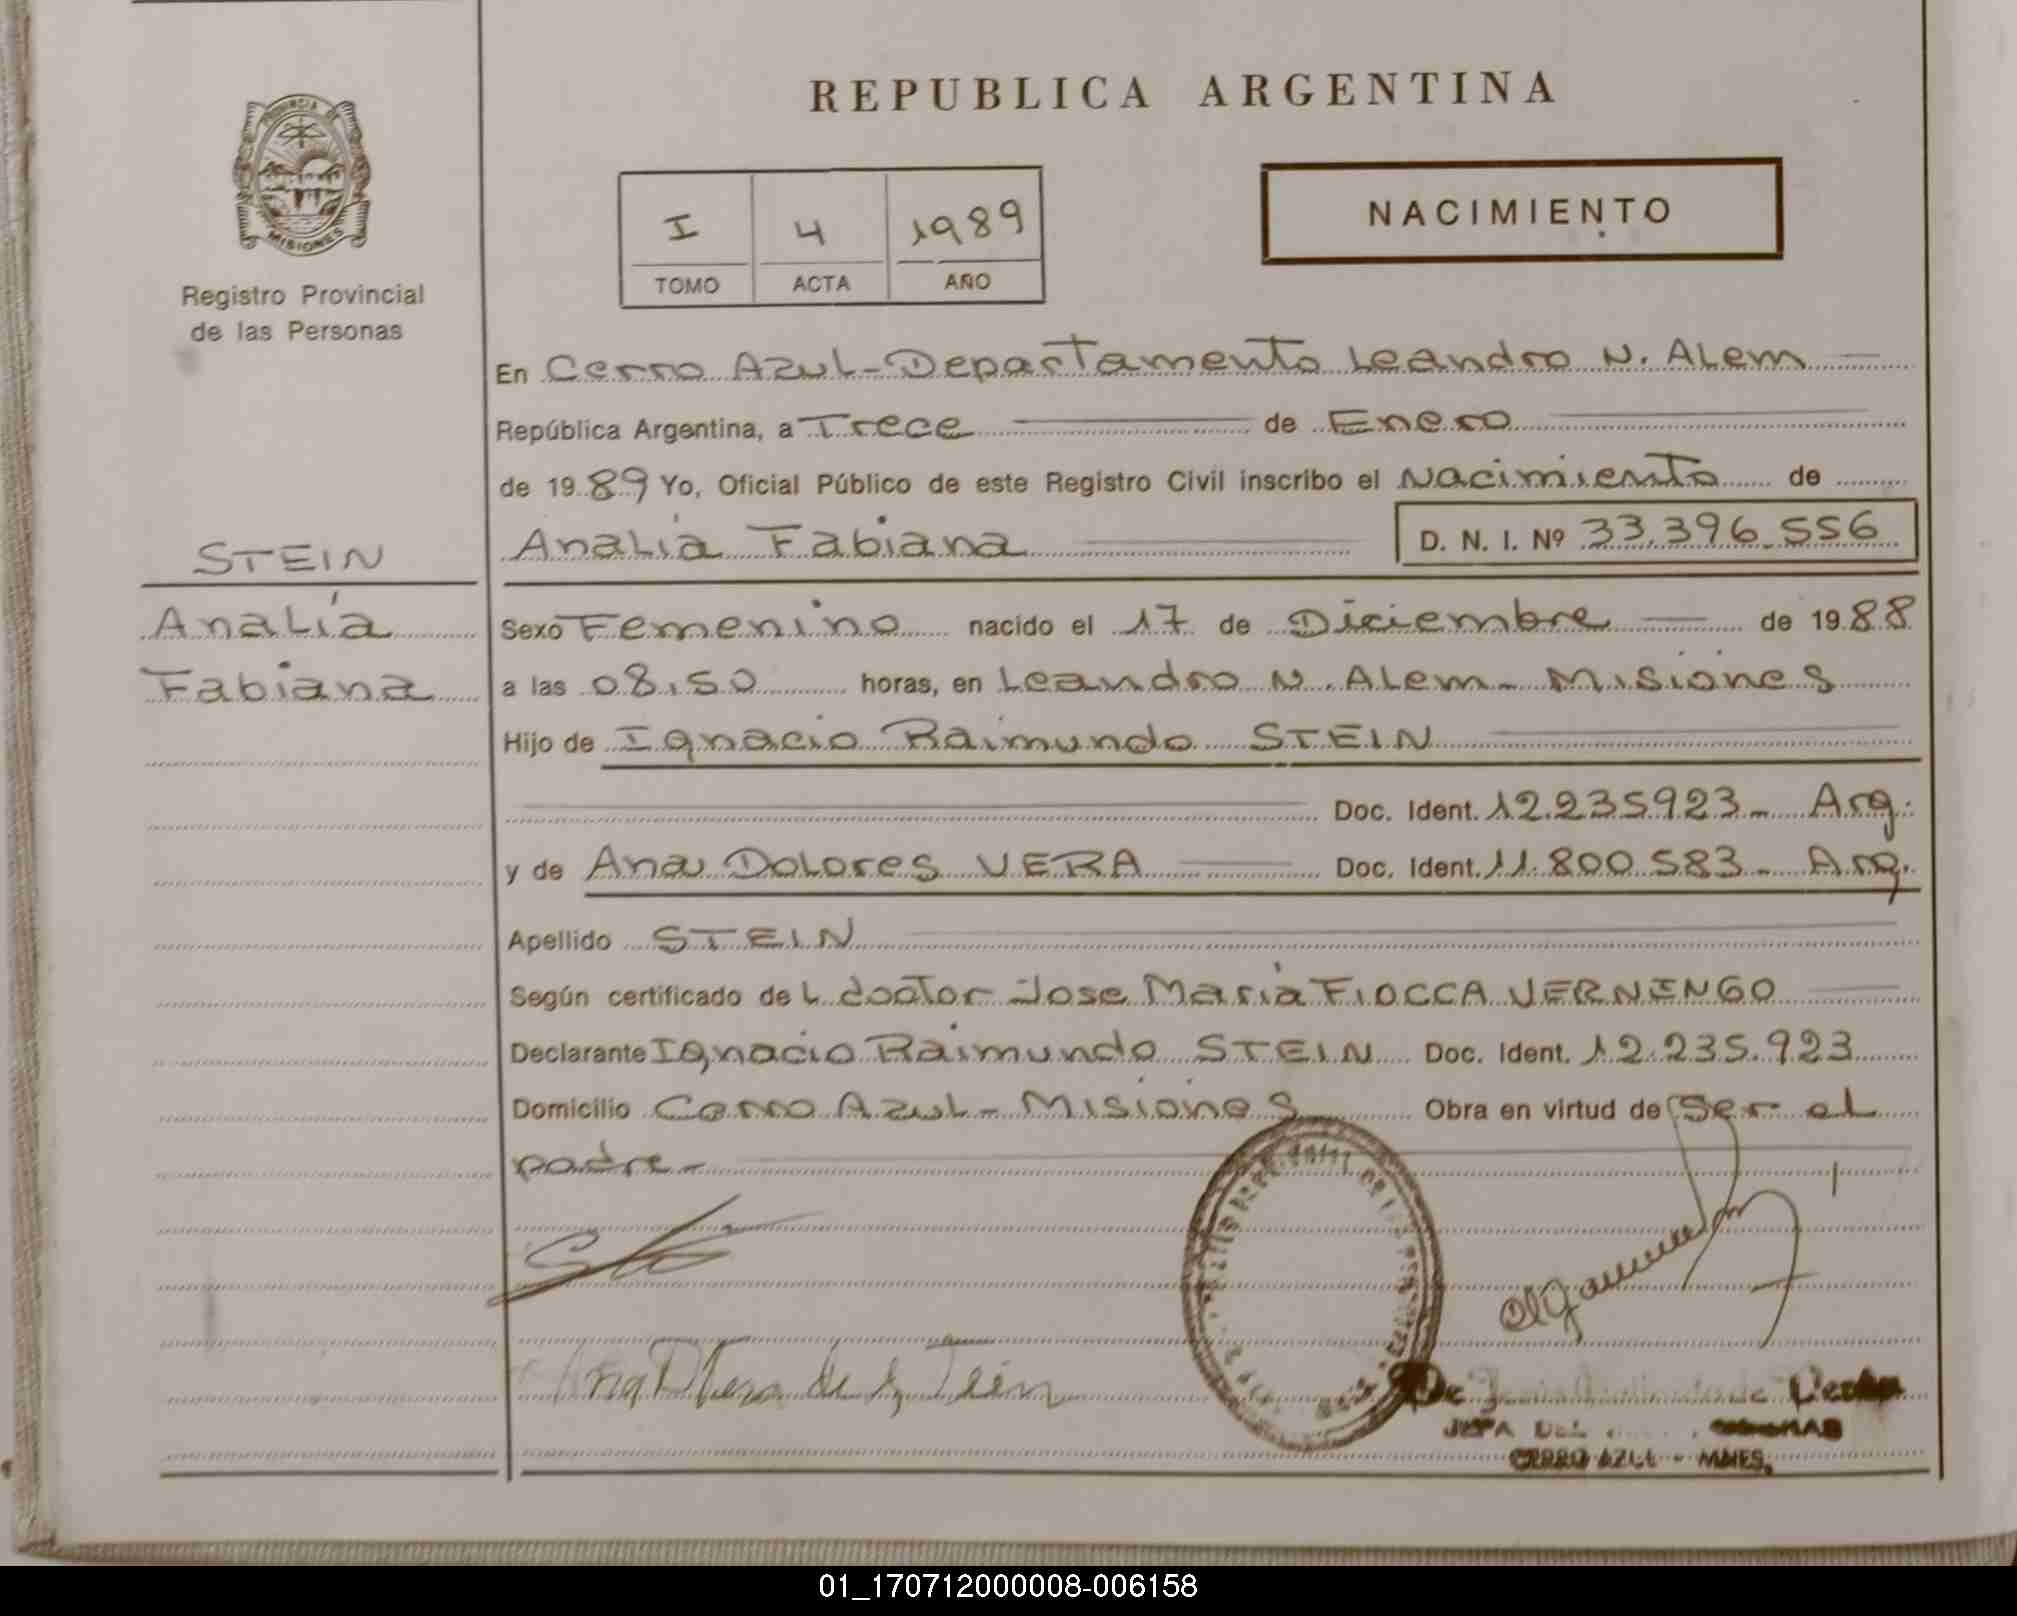 REPUBLICA ARGENTINA
PROVINCIA DE
MISIONES
Registro Provincial
de las Personas
I 4 1989
TOMO ACTA AÑO
NACIMIENTO
En Cerro Azul-Departamento Leandro N. Alem
República Argentina, a Trece de Enero
de 1989 Yo, Oficial Público de este Registro Civil inscribo el Nacimiento de
Analía Fabiana D. N. I. Nº 33.396.556
STEIN
Analía
Fabiana
Sexo Femenino nacido el 17 de Diciembre de 1988
a las 08,50 horas, en Leandro N. Alem - Misiones
Hijo de Ignacio Raimundo STEIN
Doc. Ident. 12.235923- Arg.
y de Ana Dolores VERA Doc. Ident. 11.800.583- Arg.
Apellido STEIN
Según certificado del doctor Jose María FIOCCA VERNENGO
Declarante Ignacio Raimundo STEIN Doc. Ident. 12.235.923
Domicilio Cerro Azul - Misiones Obra en virtud de Ser el
padre-
Ana D Vera de Stein
JEFA DEL
CERRO AZUL - MNES.
01_170712000008-006158